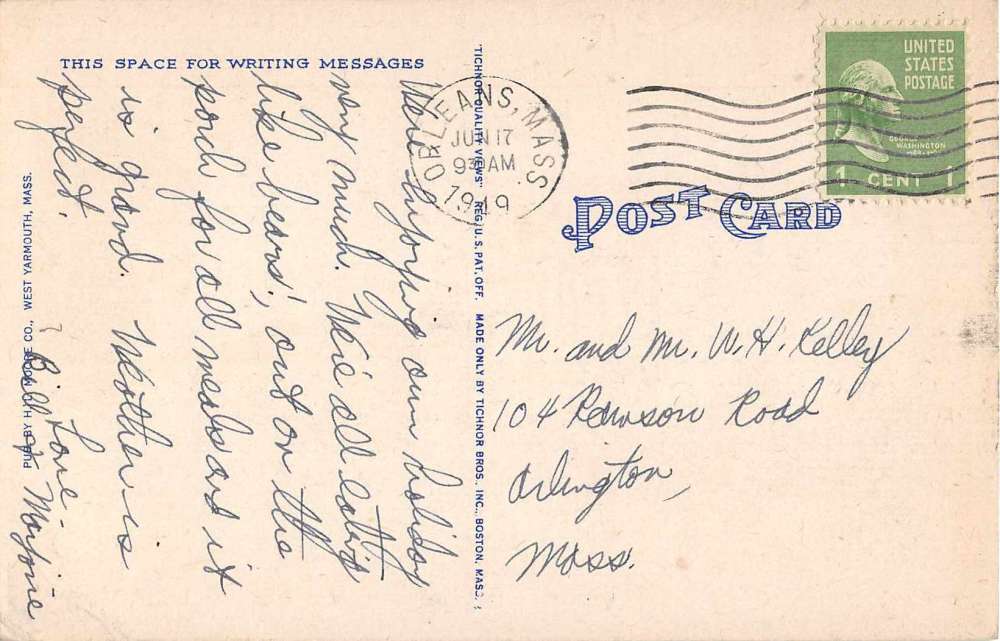 THIS SPACE FOR WRITING MESSAGES
We're enjoying our holiday
very much. We're all eating
like bears', out on the
porch for all meals and it
is grand. Weather is
perfect.
Love -
Bill & Marjorie
PUB. BY H. A. DICKERMAN
WEST YARMOUTH, MASS.
"TICHNOR QUALITY VIEWS" REG. U.S. PAT. OFF. MADE ONLY BY TICHNOR BROS., INC., BOSTON, MASS.
ORLEANS, MASS.
JUN 17
930AM
1949
UNITED
STATES
POSTAGE
GEORGE
WASHINGTON
1 CENT 1
POST CARD
Mr. and Mrs. W. H. Kelley
104 Rawson Road
Arlington,
Mass.